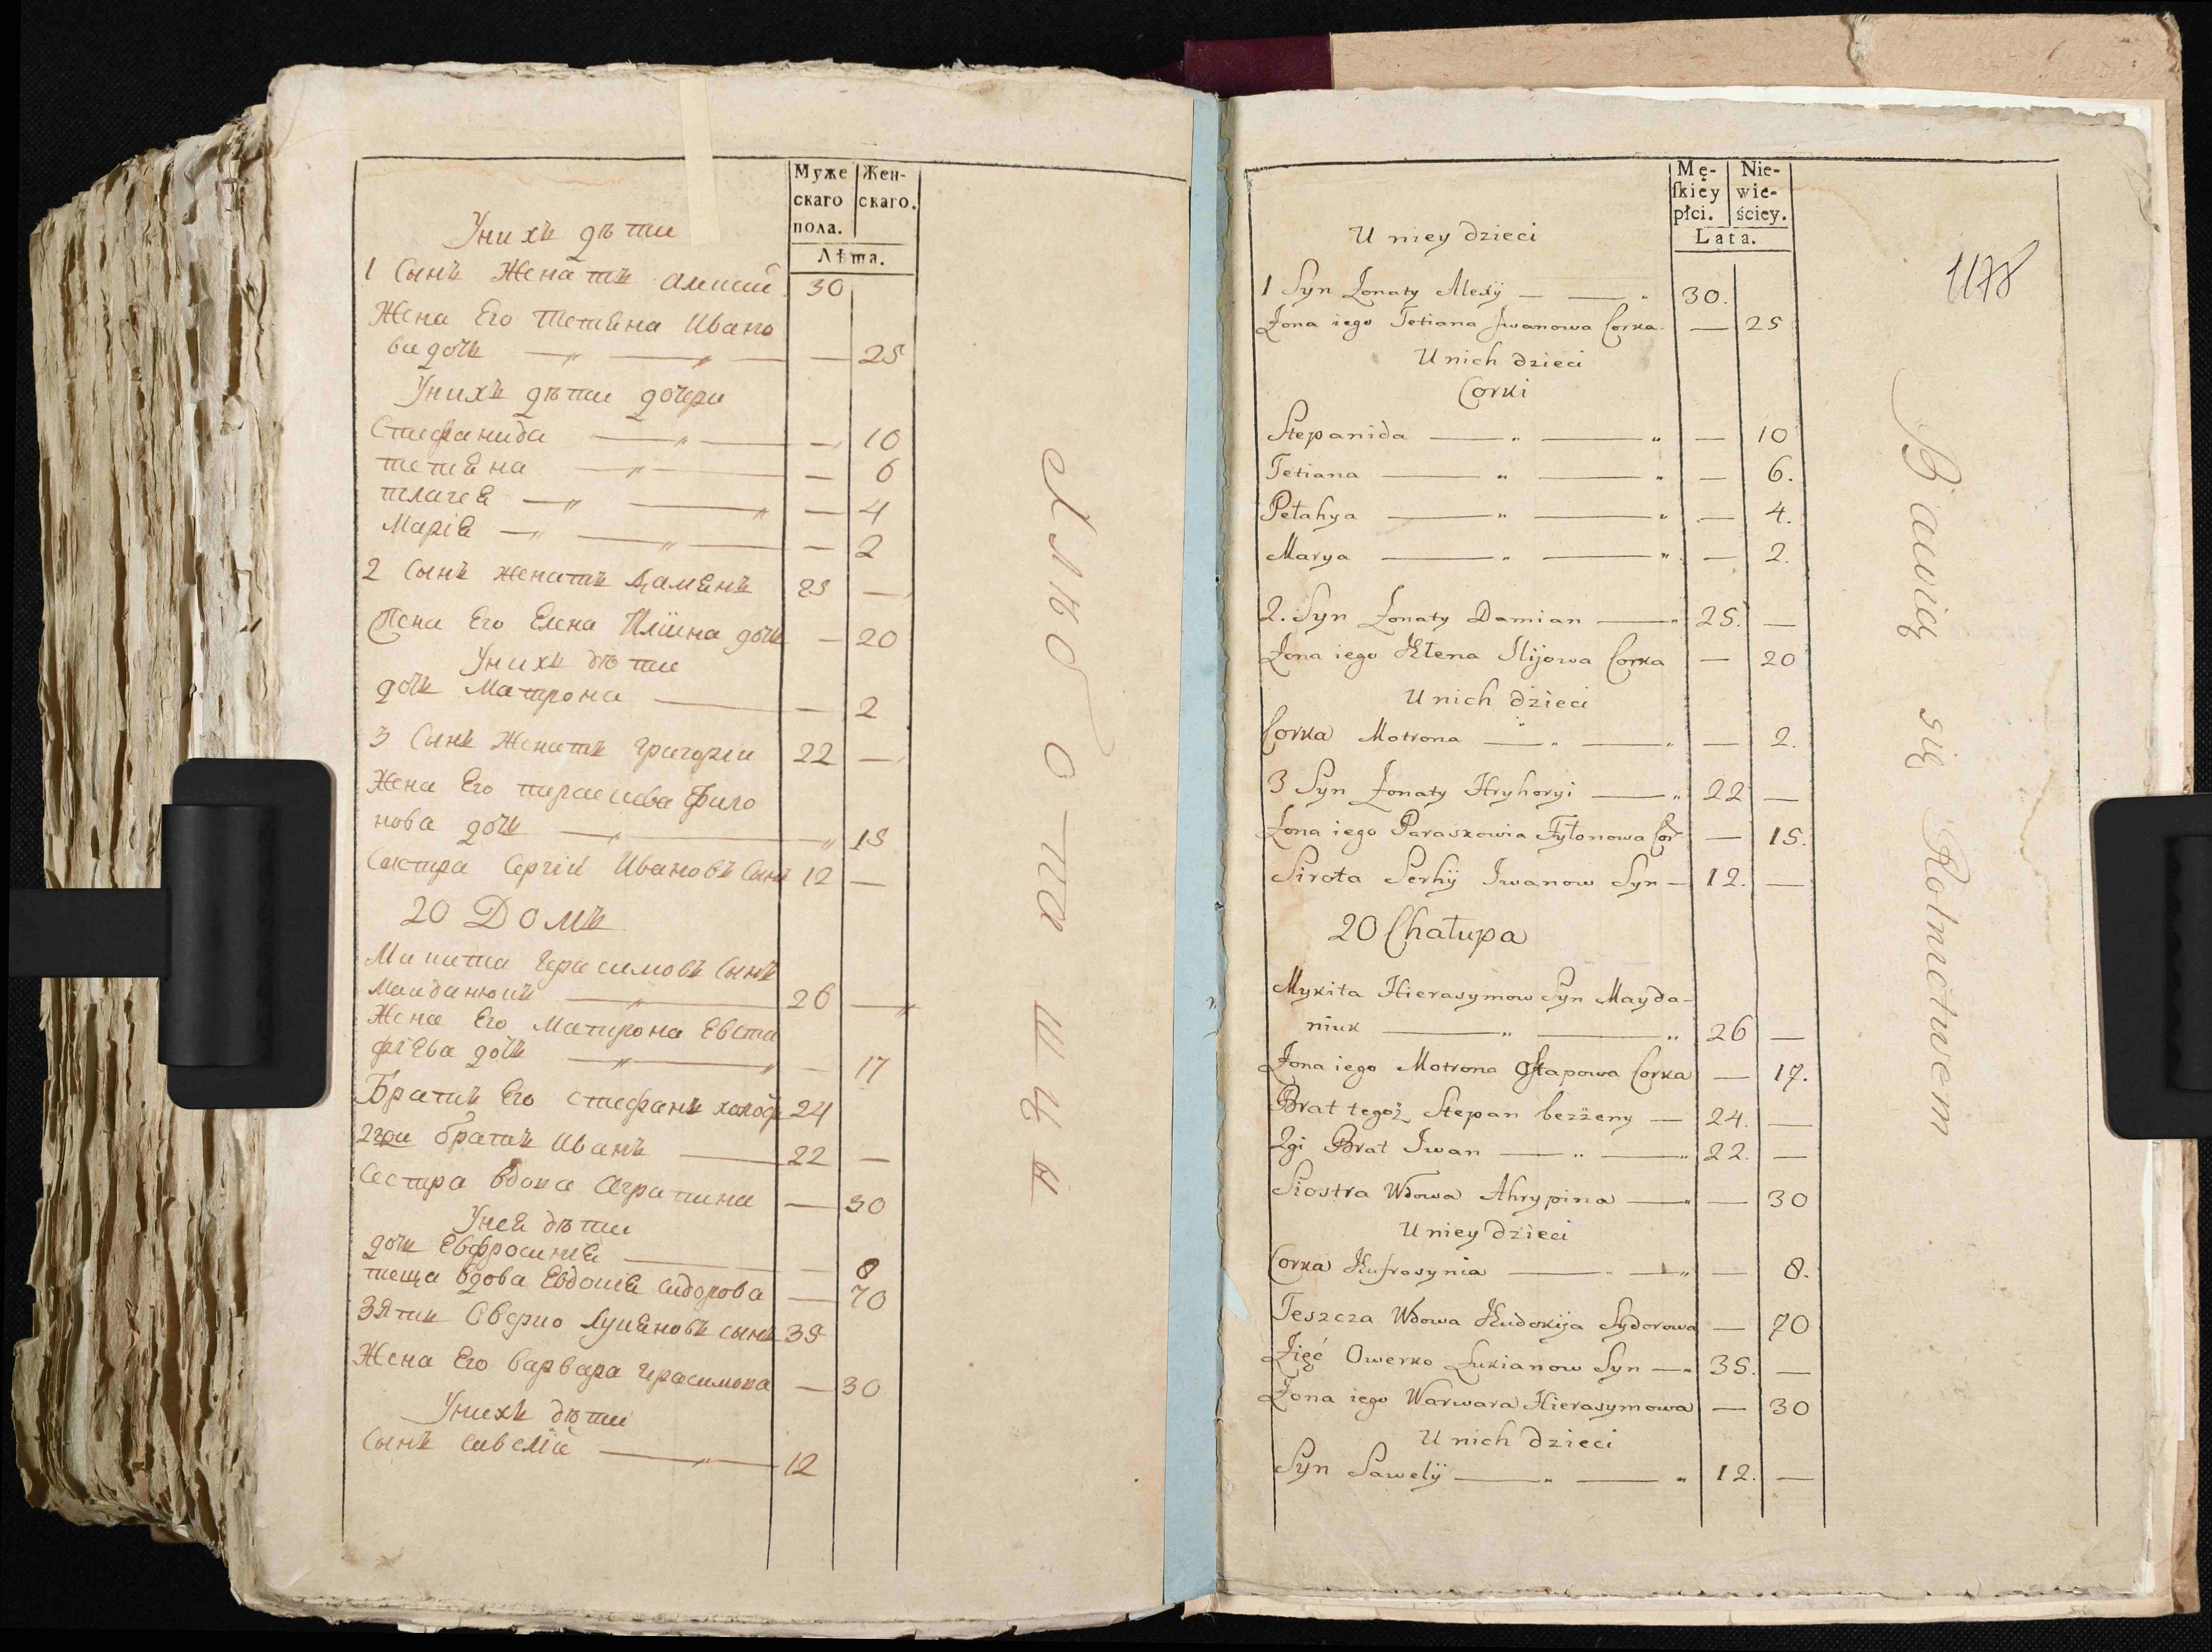 Муже
скаго
пола.
Жен-
скаго.
Лѣта.
Унихъ дѣти
1 Сынъ Женатъ 30
Жена Его Ивано
ва дочь — — — 25
Унихъ дѣти дочери
Стефанида — — — 10
— — 6
— — — 4
Марія — — — — 2
2 Сынъ женатъ Даміянъ 25 —
Жена Его Елена Иліина дочь — 20
Унихъ дѣти
дочь Матрона — — 2
3 Сынъ Женатъ Григорій 22 —
Жена Его Фило
нова дочь — — 15
Сергій Ивановъ Сынъ 12 —
20 Домъ
Микита Герасимовъ Сынъ
Майданюкъ — 26 —
Жена Его Матрона Евста
фіева дочь — — 17
Братъ Его Стефанъ 24
2гои братъ Иванъ — 22 —
Сестра вдова — 30
Унея дѣти
дочь Евфросинія — — 8
теща вдова Евдокія Сидорова — 70
Зять Оверко Лукяновъ сынъ 35
Жена Его Варвара Герасимова — 30
Унихъ дѣти
Сынъ Савелій — 12
Mę-
skiéy
płci.
Nie-
wie-
ściey.
Lata.
1178
U niey dzieci
1 Syn Żonaty Alexij — — „ 30.
Żona iego Tetiana Jwanowa Corka. — 25
U nich dzieci
Corki
Stepanida — „ — „ — 10
Tetiana — „ — „ — 6.
Pełahya — „ — „ — 4.
Marya — „ — „ — 2.
2. Syn Żonaty Damian — „ 25. —
Żona iego Helena Ilijowa Corka — 20
U nich dzieci
Corka Motrona — „ — „ — 2.
3 Syn Żonaty Hryhoryi — „ 22 —
Żona iego Paraskowia Fyłonowa Cor — 15.
Sirota Serhij Iwanow Syn — 12. —
20 Chałupa
Mykita Hierasymow Syn Mayda-
niuk — „ — „ 26 —
Żona iego Motrona Ostapowa Corka — 17.
Brat tegoż Stepan bezżeny — 24. —
2gi Brat Iwan — „ — „ 22. —
Siostra Wdowa Ahrypina — „ — 30
U niey dzieci
Corka Eufrosynia — „ — „ — 8.
Teszcza Wdowa Eudokija Sydorowa — 70
Zięć Owerko Łukianow Syn — „ 35. —
Żona iego Warwara Hierasymowa — 30
U nich dzieci
Syn Sawelij — „ — „ 12. —
Bawią się Rolnictwem